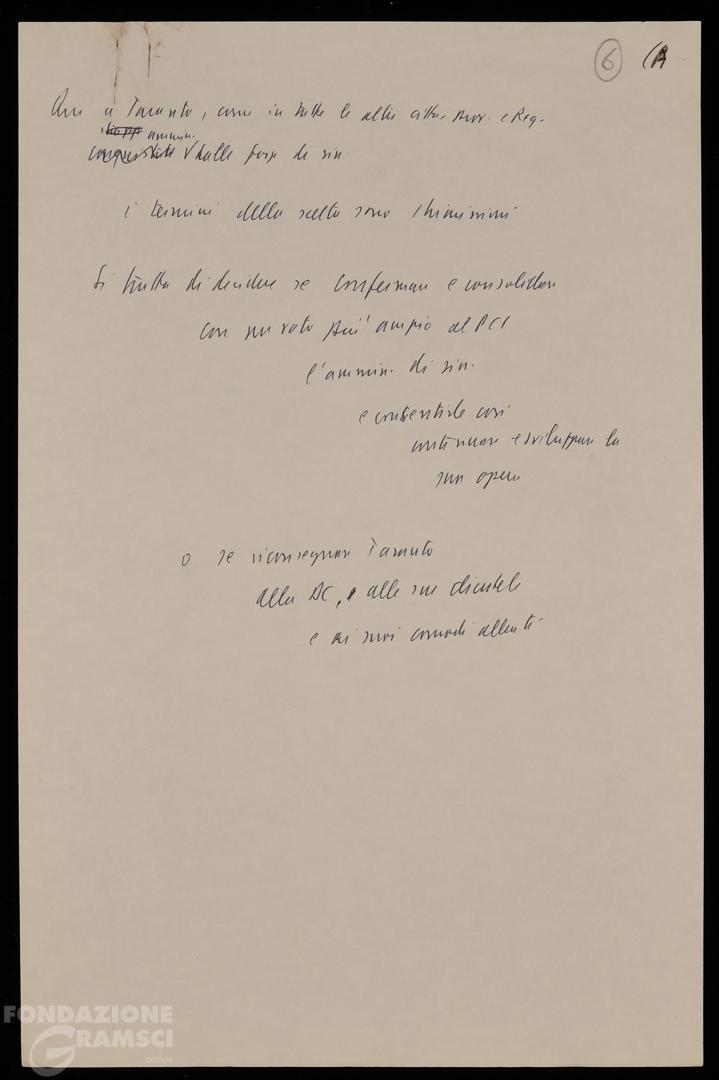 6 (A
Qui a Taranto, come in tutte le altre città, Prov. e Reg.
ammin.
conquistate dalle forze di sin.
i termini della scelta sono chiarissimi
Si tratta di decidere se confermare e consolidare
con un voto più ampio al PCI
l'ammin. di sin.
e consentirle così
continuare e sviluppare la
sua opera
o se riconsegnare Taranto
alla DC, e alle sue clientele
e ai suoi comodi alleati
FONDAZIONE
GRAMSCI
onlus